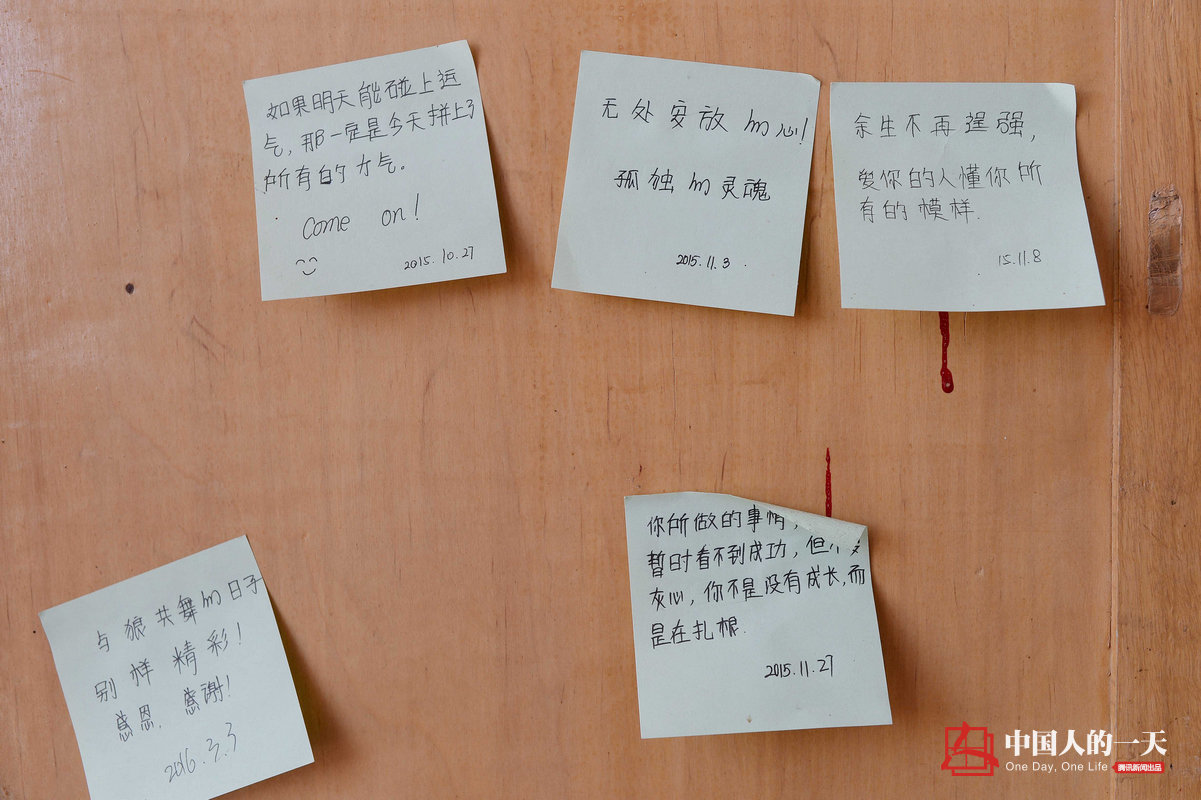 如果明天能碰上运
气，那一定是今天拼上了
所有的力气。
Come on!
2015.10.27
无处安放的心!
孤独的灵魂
2015.11.3
余生不再逞强,
爱你的人懂你所
有的模样.
15.11.8
你所做的事情,
暂时看不到成功,但
灰心,你不是没有成长,而
是在扎根.
2015.11.27
与狼共舞的日子
别样精彩!
感恩.感谢!
2016.3.3
中国人的一天
One Day, One Life
腾讯新闻出品